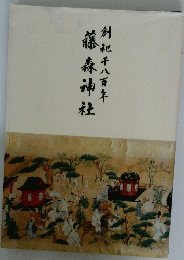 創祀千八百年
藤森神社